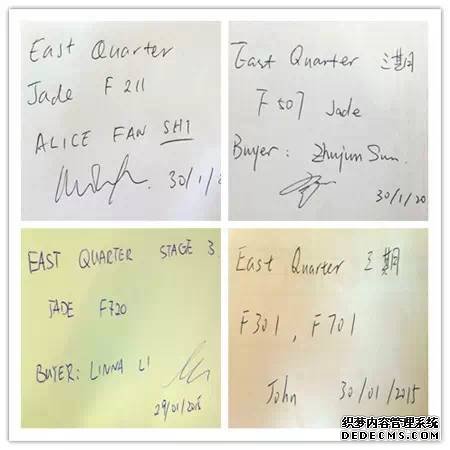 East Quarter
Jade F211
ALICE FAN SHI
30/1/20
East Quarter 三期
F507 Jade
Buyer: Zhujun Sun
30/1/20
EAST QUARTER STAGE 3
JADE F720
BUYER: LINNA LI
29/01/2015
East Quarter 三期
F301, F701
John 30/01/2015
织梦内容管理系统
DEDECMS.COM